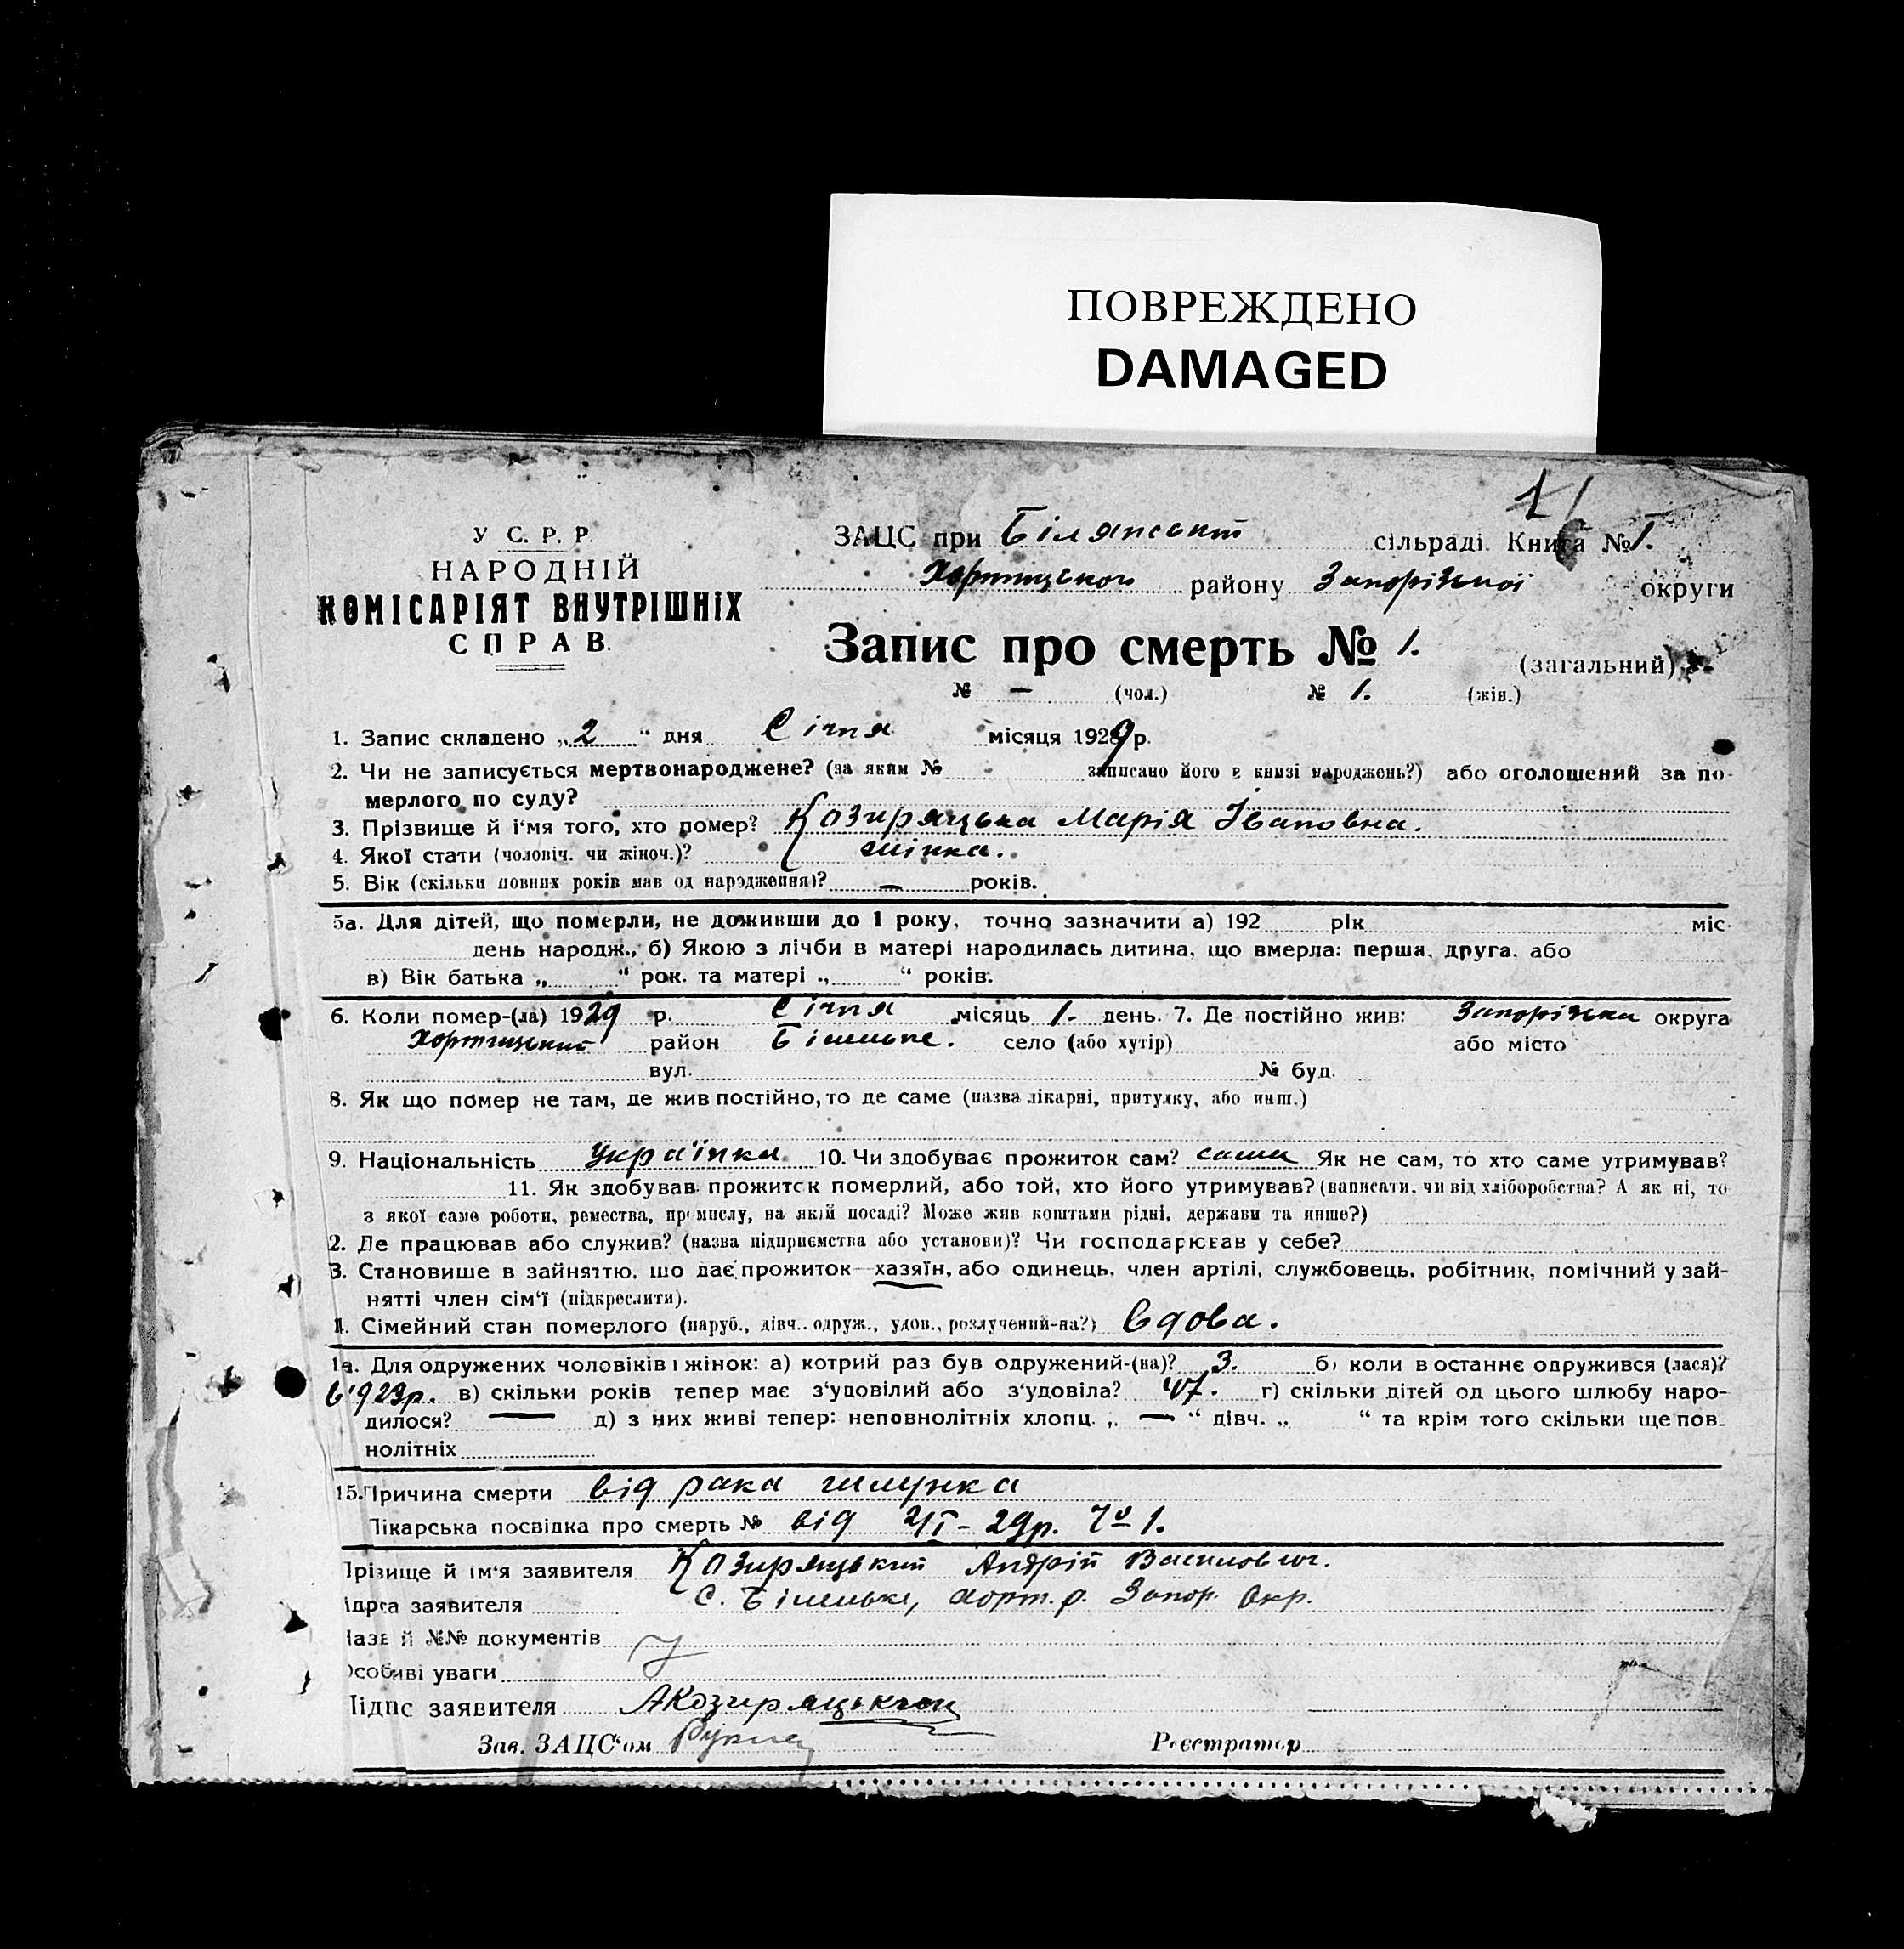 ПОВРЕЖДЕНО
DAMAGED
1
У С. Р. Р.
НАРОДНІЙ
КОМІСАРІЯТ ВНУТРІШНІХ
СПРАВ.
ЗАЦС при Білянськт сільраді. Книга № 1.
Хортицького району Запорізької округи
Запис про смерть № 1. (загальний)
№ — (чол.) № 1. (жін.)
1. Запис складено „2“ дня Січня місяця 1929 р.
2. Чи не записується мертвонароджене? (за яким № записано його в книзі народжень?) або оголошений за по-
мерлого по суду?
3. Прізвище й і'мя того, хто помер? Козиряцька Марія Івановна.
4. Якої стати (чоловіч. чи жіноч.)? жінка.
5. Вік (скільки повних років мав од народження)? — років.
5а. Для дітей, що померли, не доживши до 1 року, точно зазначити а) 192 рік міс.
день народж., б) Якою з лічби в матері народилась дитина, що вмерла: перша, друга, або
в) Вік батька „ “ рок. та матері „ “ років.
6. Коли помер-(ла) 1929 р. Січня місяць 1. день. 7. Де постійно жив: Запорізька округа
Хортицький район Біленьке. село (або хутір) або місто
вул. № буд.
8. Як що помер не там, де жив постійно, то де саме (назва лікарні, притулку, або инш.)
9. Національність Українка 10. Чи здобуває прожиток сам? сама Як не сам, то хто саме утримував?
11. Як здобував прожиток померлий, або той, хто його утримував? (написати, чи від хліборобства? А як ні, то
з якої саме роботи, ремества, промислу, на якій посаді? Може жив коштами рідні, держави та инше?)
2. Де працював або служив? (назва підприємства або установи)? Чи господарював у себе?
3. Становише в зайняттю, що дає прожиток—хазяїн, або одинець, член артілі, службовець, робітник, помічний у зай-
нятті член сім'ї (підкреслити).
4. Сімейний стан померлого (паруб., дівч., одруж., удов., розлучений-на?) вдова.
1а. Для одружених чоловіків і жінок: а) котрий раз був одружений-(на)? 3. б) коли в останнє одружився (лася)?
в 1923р. в) скільки років тепер має з'удовілий або з'удовіла? 47. г) скільки дітей од цього шлюбу наро-
дилося? — д) з них живі тепер: неповнолітніх хлопц. „ — “ дівч. „ “ та крім того скільки ще пов-
нолітніх
15. Причина смерти від рака шлунка
Лікарська посвідка про смерть № від 2/I - 29р. № 1.
Прізище й ім'я заявителя Козиряцький Андрій Василович.
Адреса заявителя С. Біленьке, Хорт. р. Запор. Окр.
Назв й №№ документів
Особиві уваги
Підпс заявителя АКозиряцький
Зав. ЗАЦС'ом
Реєстратор